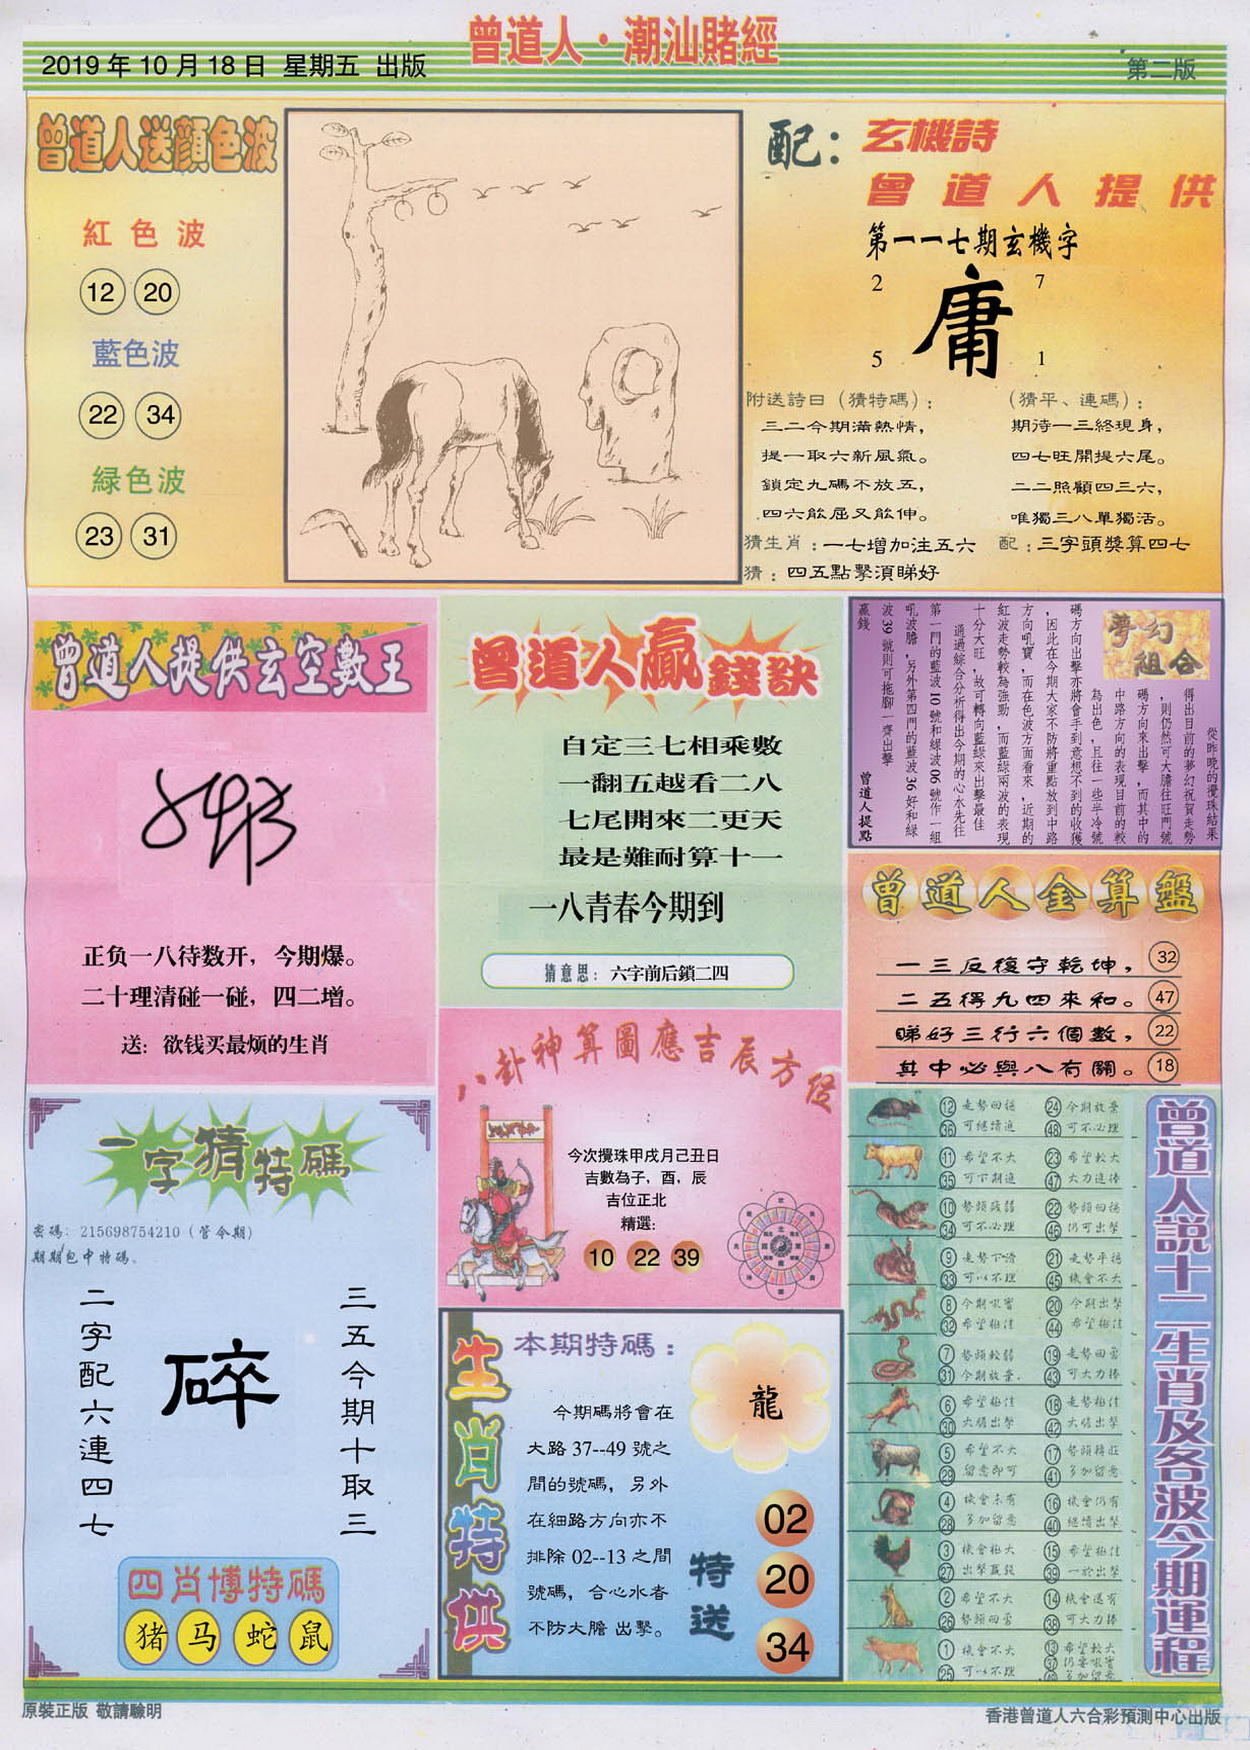 曾道人·潮汕賭經
2019年10月18日 星期五 出版
第二版
曾道人送顏色波
紅色波
12 20
藍色波
22 34
緑色波
23 31
配：玄機詩
曾道人提供
第一一七期玄機字
2 7
庸
5 1
附送詩曰（猜特碼）：
三二今期滿熱情，
提一取六新風氣。
鎖定九碼不放五，
四六能屈又能伸。
（猜平、連碼）：
期待一三終現身，
四七旺開提六尾。
二二照顧四三六，
唯獨三八單獨活。
猜生肖：一七增加注五六 配：三字頭獎算四七
猜：四五點擊須睇好
曾道人提供玄空數王
正负一八待数开，今期爆。
二十理清碰一碰，四二增。
送：欲钱买最烦的生肖
曾道人贏錢訣
自定三七相乘數
一翻五越看二八
七尾開來二更天
最是難耐算十一
一八青春今期到
猜意思：六字前后鎖二四
夢幻組合
從昨晚的攪珠結果
得出目前的夢幻祝賀走勢
，則仍然可大膽往旺門號
碼方向來出擊，而其中的
中路方向的表現目前的較
為出色，且往一些半冷號
碼方向出擊亦將會手到意想不到的收獲
，因此在今期大家不防將重點放到中路
方向吼寶，而在色波方面看來，近期的
紅波走勢較為強勁，而藍綠兩波的表現
十分大旺，故可轉向藍綠來出擊最佳
通過綜合分析得出今期的心水先往
第一門的藍波10號和綠波06號作一組
吼波膽，另外第四門的藍波36好和綠
波39號則可拖腳一齊出擊
贏錢
曾道人提點
曾道人金算盤
一三反復守乾坤，32
二五得九四來和。47
睇好三行六個數，22
其中必與八有關。18
八卦神算圖應吉辰方位
今次攪珠甲戌月己丑日
吉數為子，酉，辰
吉位正北
精選：
10 22 39
一字猜特碼
密碼：215698754210（管令期）
期期包中特碼。
二字配六連四七
碎
三五今期十取三
四肖博特碼
猪 马 蛇 鼠
生肖特供
本期特碼：
龍
今期碼將會在
大路37--49號之
間的號碼，另外
在細路方向亦不
排除02--13之間
號碼，合心水者
不防大膽出擊。
特送
02
20
34
曾道人說十二生肖及各波今期運程
12 走勢回穩 24 今期放棄
36 可繼續追 48 可不必理
11 希望不大 23 希望較大
35 可下期追 47 大力追捧
10 勢頭疲弱 22 勢頭回穩
34 可不必理 46 仍可出擊
9 走勢下滑 21 走勢平穩
33 可以不理 45 機會不大
8 今期吼實 20 今期出擊
32 希望極佳 44 希望極佳
7 勢頭較弱 19 走勢回雲
31 今期放棄. 43 可大力捧
6 希望極佳 18 走勢極佳
30 大膽出擊 42 大膽出擊
5 希望不大 17 勢頭轉旺
29 留意即可 41 多加留意
4 機會未有 16 機會仍有
28 多加留意 40 繼續出擊
3 機會極大 15 希望極佳
27 出擊 39 一於出擊
2 希望不大 14 機會還有
26 勢頭回雲 38 可大力捧
1 機會不大 13 希望較大
25 可以不理 37 仍要吼實
49 多加留意
原裝正版 敬請驗明
香港曾道人六合彩預測中心出版